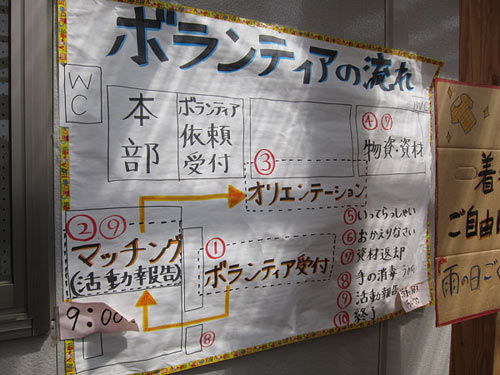 ボランティアの流れ
WC
本部
ボランティア
依頼
受付
WC
④⑦
物資・資材
③
オリエンテーション
②⑨
マッチング
(活動報告)
①
ボランティア受付
⑤いってらっしゃい
⑥おかえりなさい
⑦資材返却
⑧手の消毒 うがい
⑨活動報告
⑩終了
9:00
⑧
着
ご自由
雨の日ご